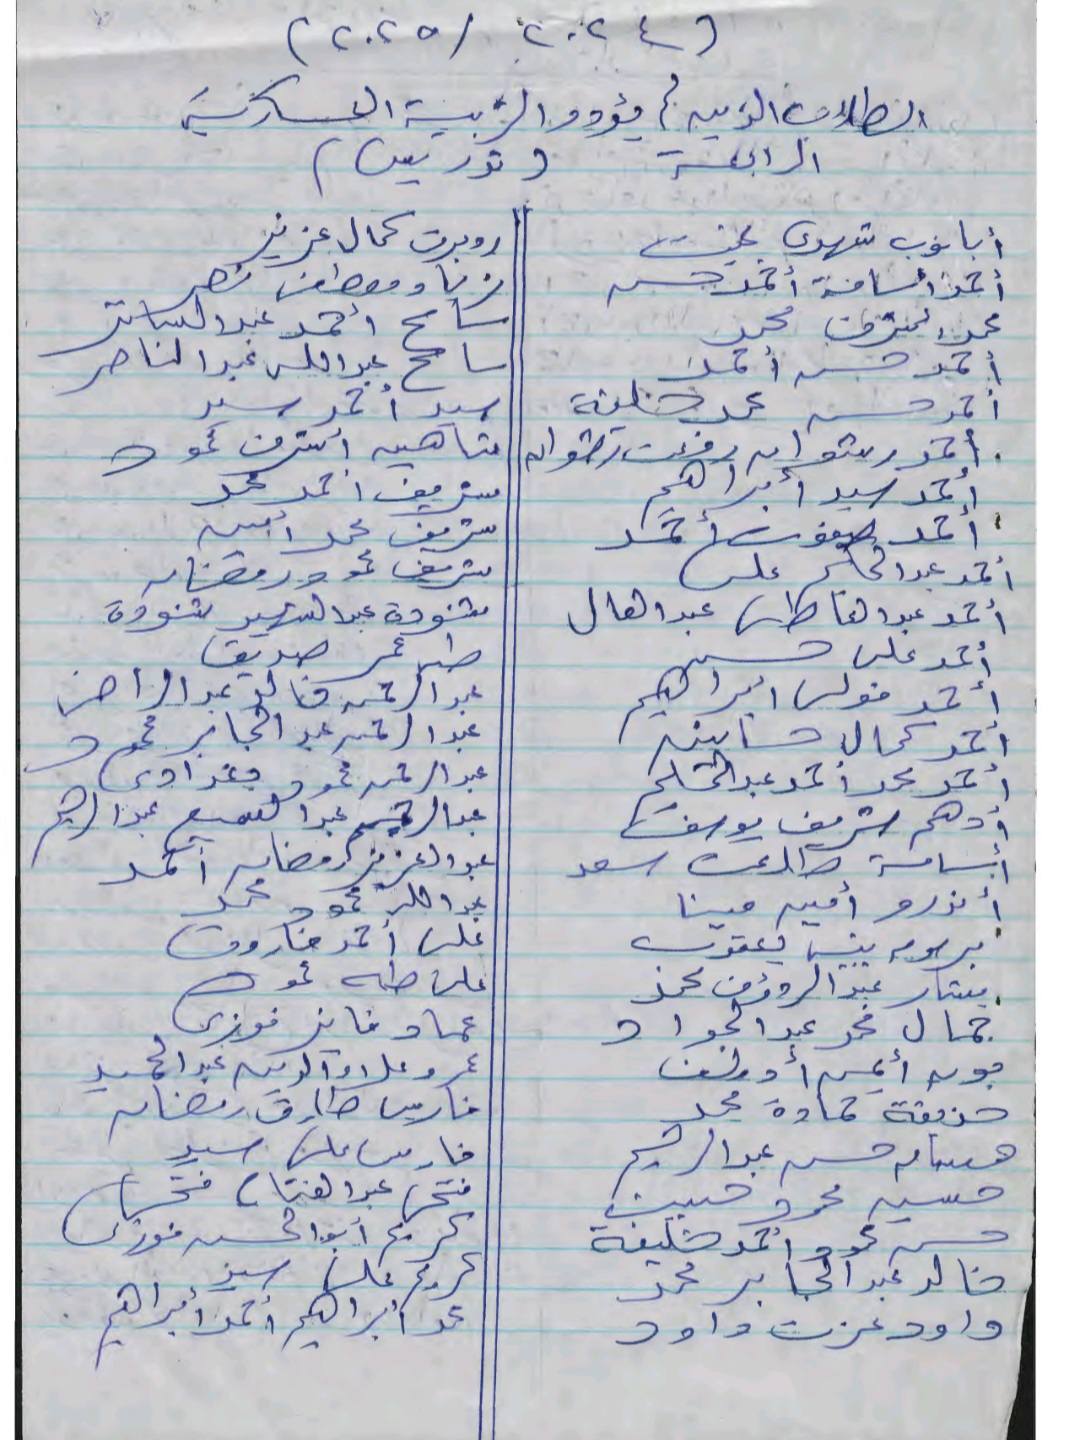 (٢٠٢٤ / ٢٠٢٥)
الطلاب الذين لم يؤدوا التربية العسكرية
الرابعة (تدريس)
أبانوب شهدى بخيت
أحمد أسامة أحمد حسن
محمد أشرف محمد
أحمد حسن أحمد
أحمد حسن محمد خليفة
أحمد رشوان رفعت رشوان
أحمد سيد أبراهيم
أحمد صفوت أحمد
أحمد عبدالحكم على
أحمد عبدالعاطى عبدالعال
أحمد على حسن
أحمد فولى ابراهيم
أحمد كمال
أحمد محمد أحمد عبدالحكم
أدهم شريف يوسف
أسامة طلعت سعد
أندرو أمين مينا
يعقوب
بيشار عبدالرؤف محمد
جمال محمد عبدالجواد
أيمن
حذيفة حمادة محمد
حسام حسن عبدالرحيم
حسين محمود حسين
حسن محمود أحمد خليفة
خالد عبدالجابر محمد
داود عزت داود
روبرت كمال عزيز
زياد مصطفى نصر
سامح أحمد عبدالستار
سامح عبدالله عبدالناصر
سيد أحمد سيد
شاهين أشرف محمود
شريف أحمد محمد
شريف محمد أمين
شريف محمود رمضان
شنودة عبدالشهيد شنودة
طه عمر صديق
عبدالرحمن خالد عبدالراضى
عبدالرحمن عبدالجابر محمود
عبدالرحمن محمود بغدادى
عبدالرحيم عبدالسميع عبدالرحيم
عبدالعزيز رمضان أحمد
عبدالله محمود محمد
على أحمد فاروق
على طه محمود
عماد فايز فوزى
عمرو علاء الدين عبدالحميد
فارس طارق رمضان
فارس على سيد
فتحى عبدالفتاح فتحى
كريم أبوالحسن فوزى
كروم على سيد
محمد أبراهيم أحمد أبراهيم